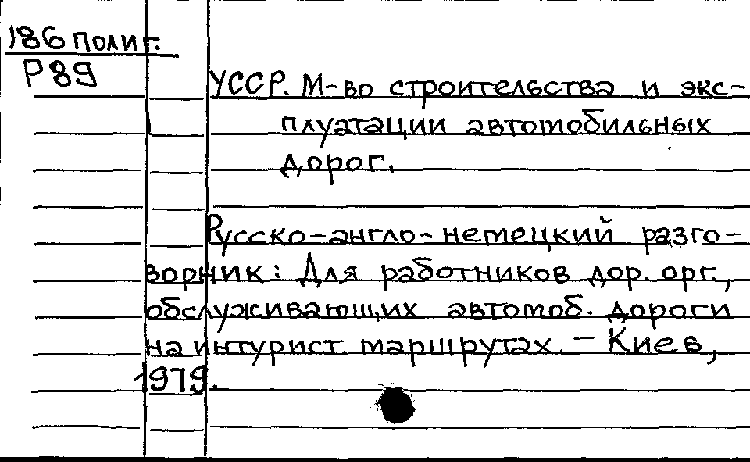 186 Полиг.
Р89
УССР. М-во строительства и экс-
плуатации автомобильных
дорог.
Русско-англо-немецкий разго-
ворник: Для работников дор. орг.,
обслуживающих автомоб. дороги
на интурист. маршрутах. - Киев,
1979.